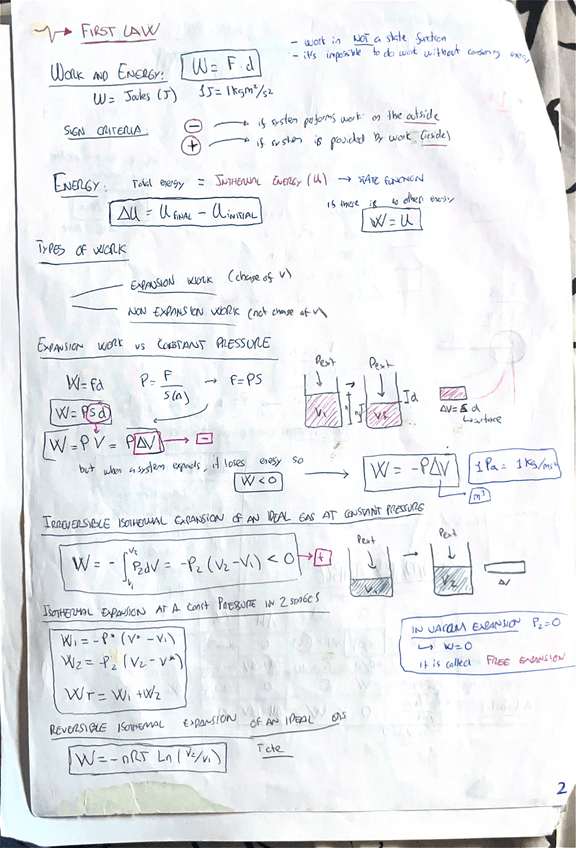 FIRST LAW
- work in NOT a state function
- it's impossible to do work without consuming energy
WORK AND ENERGY: W = F·d
W = Joules (J) 1J = 1kgm²/s²
SIGN CRITERIA
⊖ → if system performs work on the outside
⊕ → if system is provided by work (inside)
ENERGY: Total energy = INTHERNAL ENERGY (U) → STATE FUNCTION
ΔU = U FINAL - U INITIAL
is there is no other energy
W = U
TYPES OF WORK
EXPANSION WORK (change of V)
NON EXPANSION WORK (not change of V)
EXPANSION WORK VS CONSTANT PRESSURE
W = Fd P = F/S(n) → F = PS
W = PSd
W = PV = PΔV → -
Pext Pext
V₁ d
ΔV = S d
surface
but when a system expands, it loses energy so → W = -PΔV
W < 0
m³
1Pa = 1kg/ms²
IRREVERSIBLE ISOTHERMAL EXPANSION OF AN IDEAL GAS AT CONSTANT PRESSURE
W = - ∫ᵥ₁ⱽ² P₂dV = -P₂ (V₂-V₁) < 0 → +
Pext Pext
V₁ V₂ ΔV
ISOTHERMAL EXPANSION AT A CONST PRESSURE IN 2 STAGES
W₁ = -P* (V* - V₁)
W₂ = -P₂ (V₂ - V*)
WT = W₁ + W₂
IN VACUUM EXPANSION P₂ = 0
↳ W = 0
it is called FREE EXPANSION
REVERSIBLE ISOTHERMAL EXPANSION OF AN IDEAL GAS
W = -nRT Ln (V₂/V₁)
2